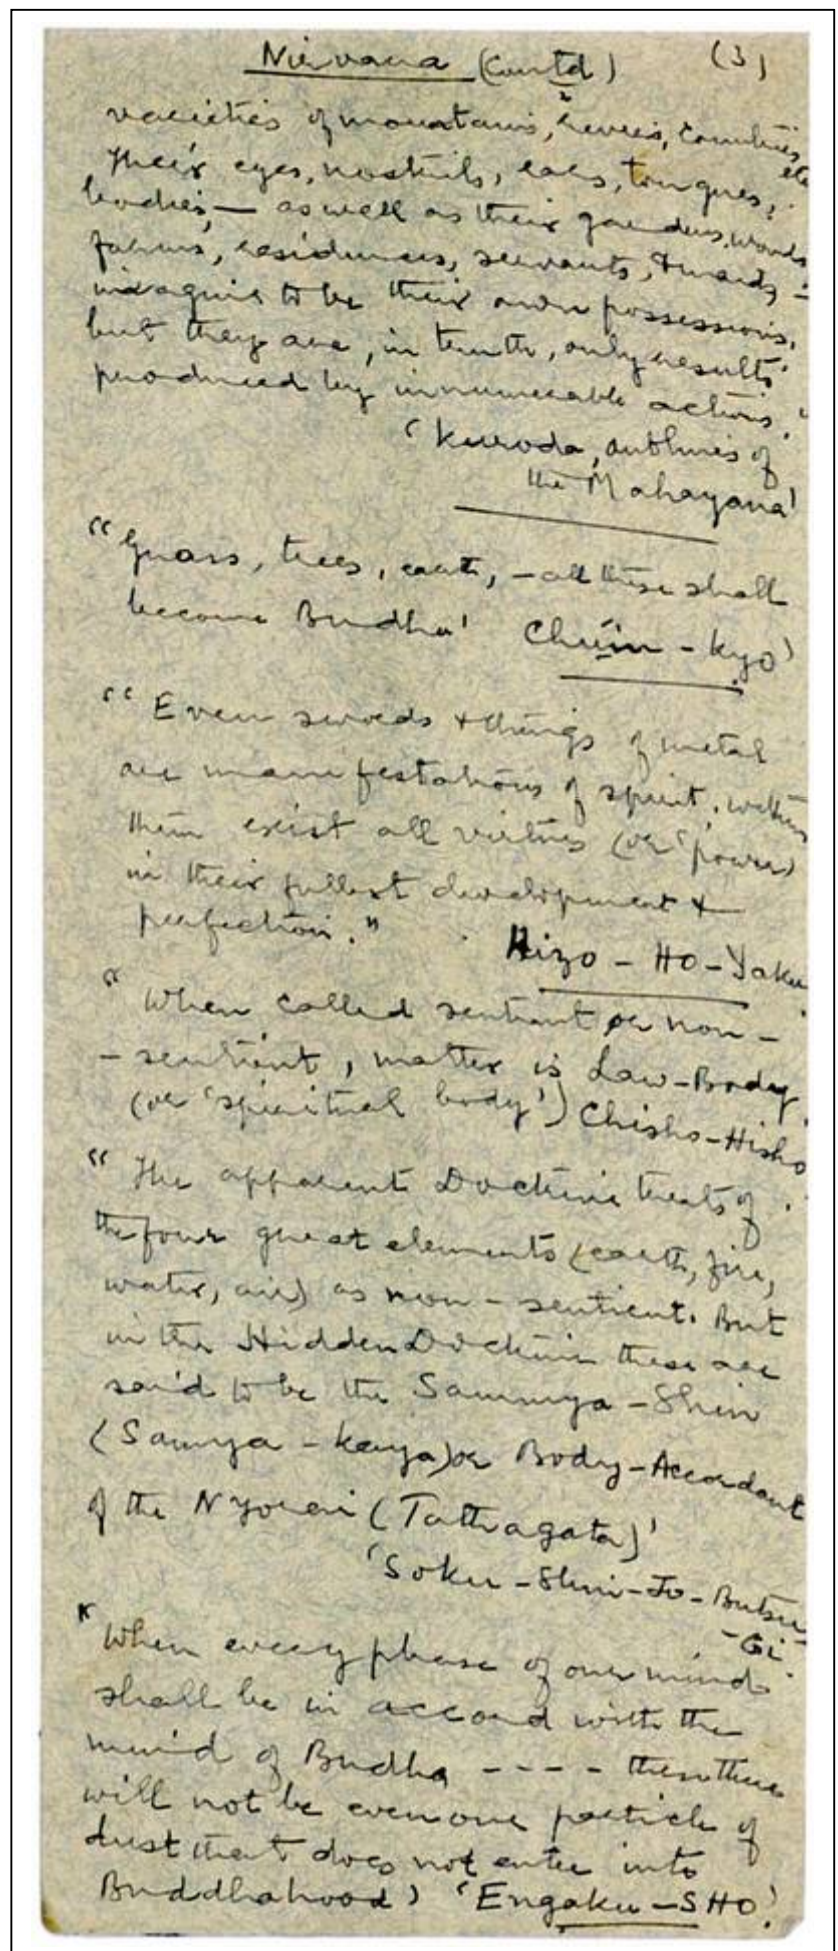 Nirvana (Contd) (3)
varieties of mountains, rivers, countries etc
Their eyes, nostrils, ears, tongues,
bodies, — as well as their gardens, woods
farms, residences, servants, & maids —
imagine to be their own possessions,
but they are, in truth, only results
produced by innumerable actions."
'Kuroda, outlines of
the Mahayana'
"Grass, trees, earth, — all these shall
become Buddha' Chuin-Kyo'
"Even swords & things of metal
are manifestations of spirit. within
them exist all virtues (or 'power)
in their fullest development &
perfection."
Hizo - HO - Yaku
"When called sentient or non -
- sentient, matter is Law-Body
(or 'spiritual body') Chisho-Hisho
"The apparent Doctrine treats of
the four great elements (earth, fire,
water, air) as non - sentient. But
in the Hidden Doctrine these are
said to be the Sammya - Shin
(Samya - kaya) or Body-Accordant
of the Nyorai (Tathagata)'
'Soku - Shin - Jo - Butsu -
- Gi.
"When every phase of our mind
shall be in accord with the
mind of Budha - - - - then there
will not be even one particle of
dust that does not enter into
Buddhahood) 'Engaku - SHO'